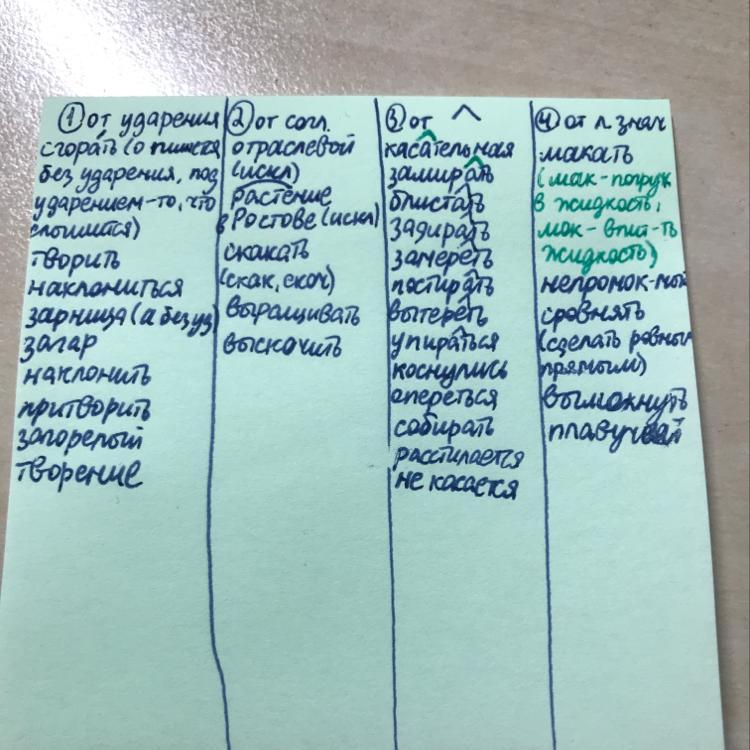 ① от ударения
сгорать (о пишется
без ударения, под
ударением-то, что
слышится)
творить
наклониться
зарница (а без уд)
загар
наклонить
притворить
загорелый
творение
② от согл.
отраслевой
(искл)
растение
в Ростове (искл)
скакать
(скак, скоч)
выращивать
выскочить
③ от ^
касательная
замирать
блистать
задирать
замереть
постирать
вытереть
упираться
коснулись
опереться
собирать
расстилается
не касается
④ от л. знач
макать
(мак-погруж
в жидкость,
мок-впит-ть
жидкость)
непромок-мый
сровнять
(сделать ровным
прямым)
вымокнуть